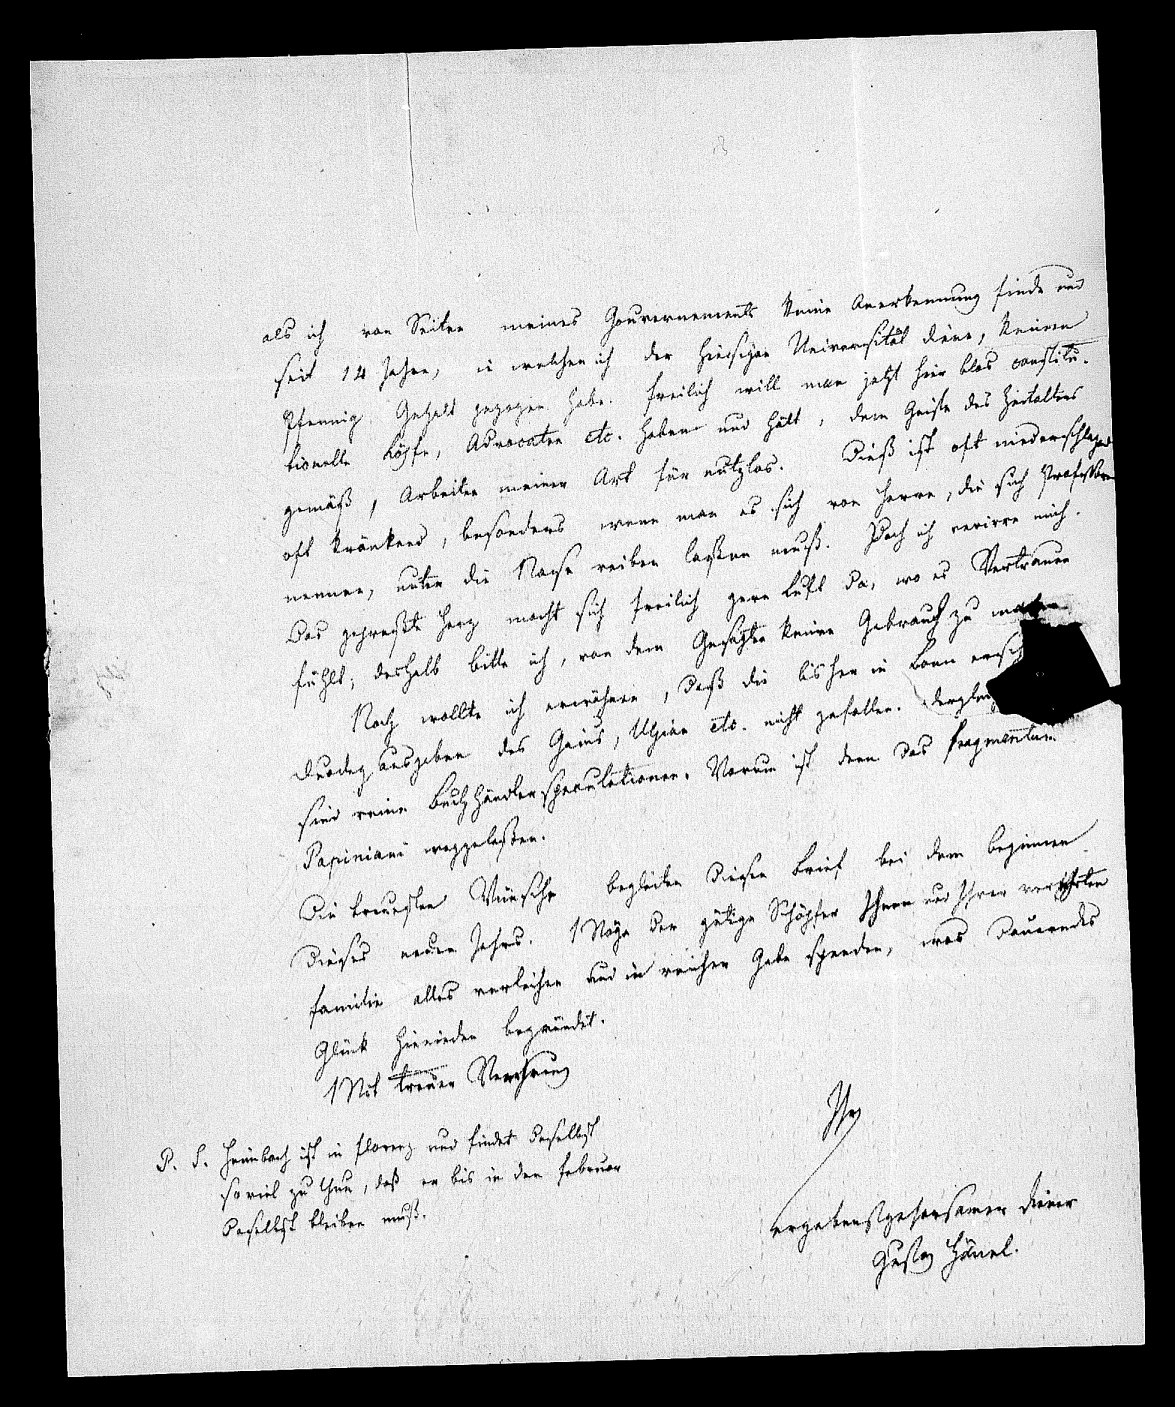 als ich von Seiten meines Gouvernements keine Anerkennung finde und
seit 14 Jahren, in welchen ich der hiesigen Universität diene, keinen
Pfennig Gehalt gezogen habe. Freilich will man jetzt hier blos constitu-
tionelle Köpfe, Advocaten etc. haben und hält, dem Geiste des Zeitalters
gemäß, Arbeiten meiner Art für nutzlos. Dieß ist oft niederschlagend
oft kränkend, besonders wenn man es sich von Herren, die sich Professoren
nennen, unter die Nase reiben laßen muß. Doch ich verirre mich.
Das gepreßte Herz macht sich freilich gern Luft da, wo es Vertrauen
fühlt; deshalb bitte ich, von dem Gesagten keinen Gebrauch zu machen
Noch wollte ich erwähnen, daß die bisher in Bonn ersch
Duodezausgaben des Gaius, Ulpian etc. nicht gefallen. Dergl
sind reine Buchhändlerspeculationen. Warum ist denn das fragmentum
Papiniani weggelaßen.
Die treuesten Wünsche begleiten diesen Brief bei dem Beginnen
dieses neuen Jahres. Möge der gütige Schöpfer Ihnen und Ihrer verehrten
Familie alles verleihen und in reicher Gabe spenden, was dauerndes
Glück hienieden begründet.
Mit treuer Verehrung
Ihr
ergebenst gehorsamer Diener
Gustav Hänel.
P. S. Heimbach ist in Florenz und findet daselbst
so viel zu thun, daß er bis in den Februar
daselbst bleiben muß.